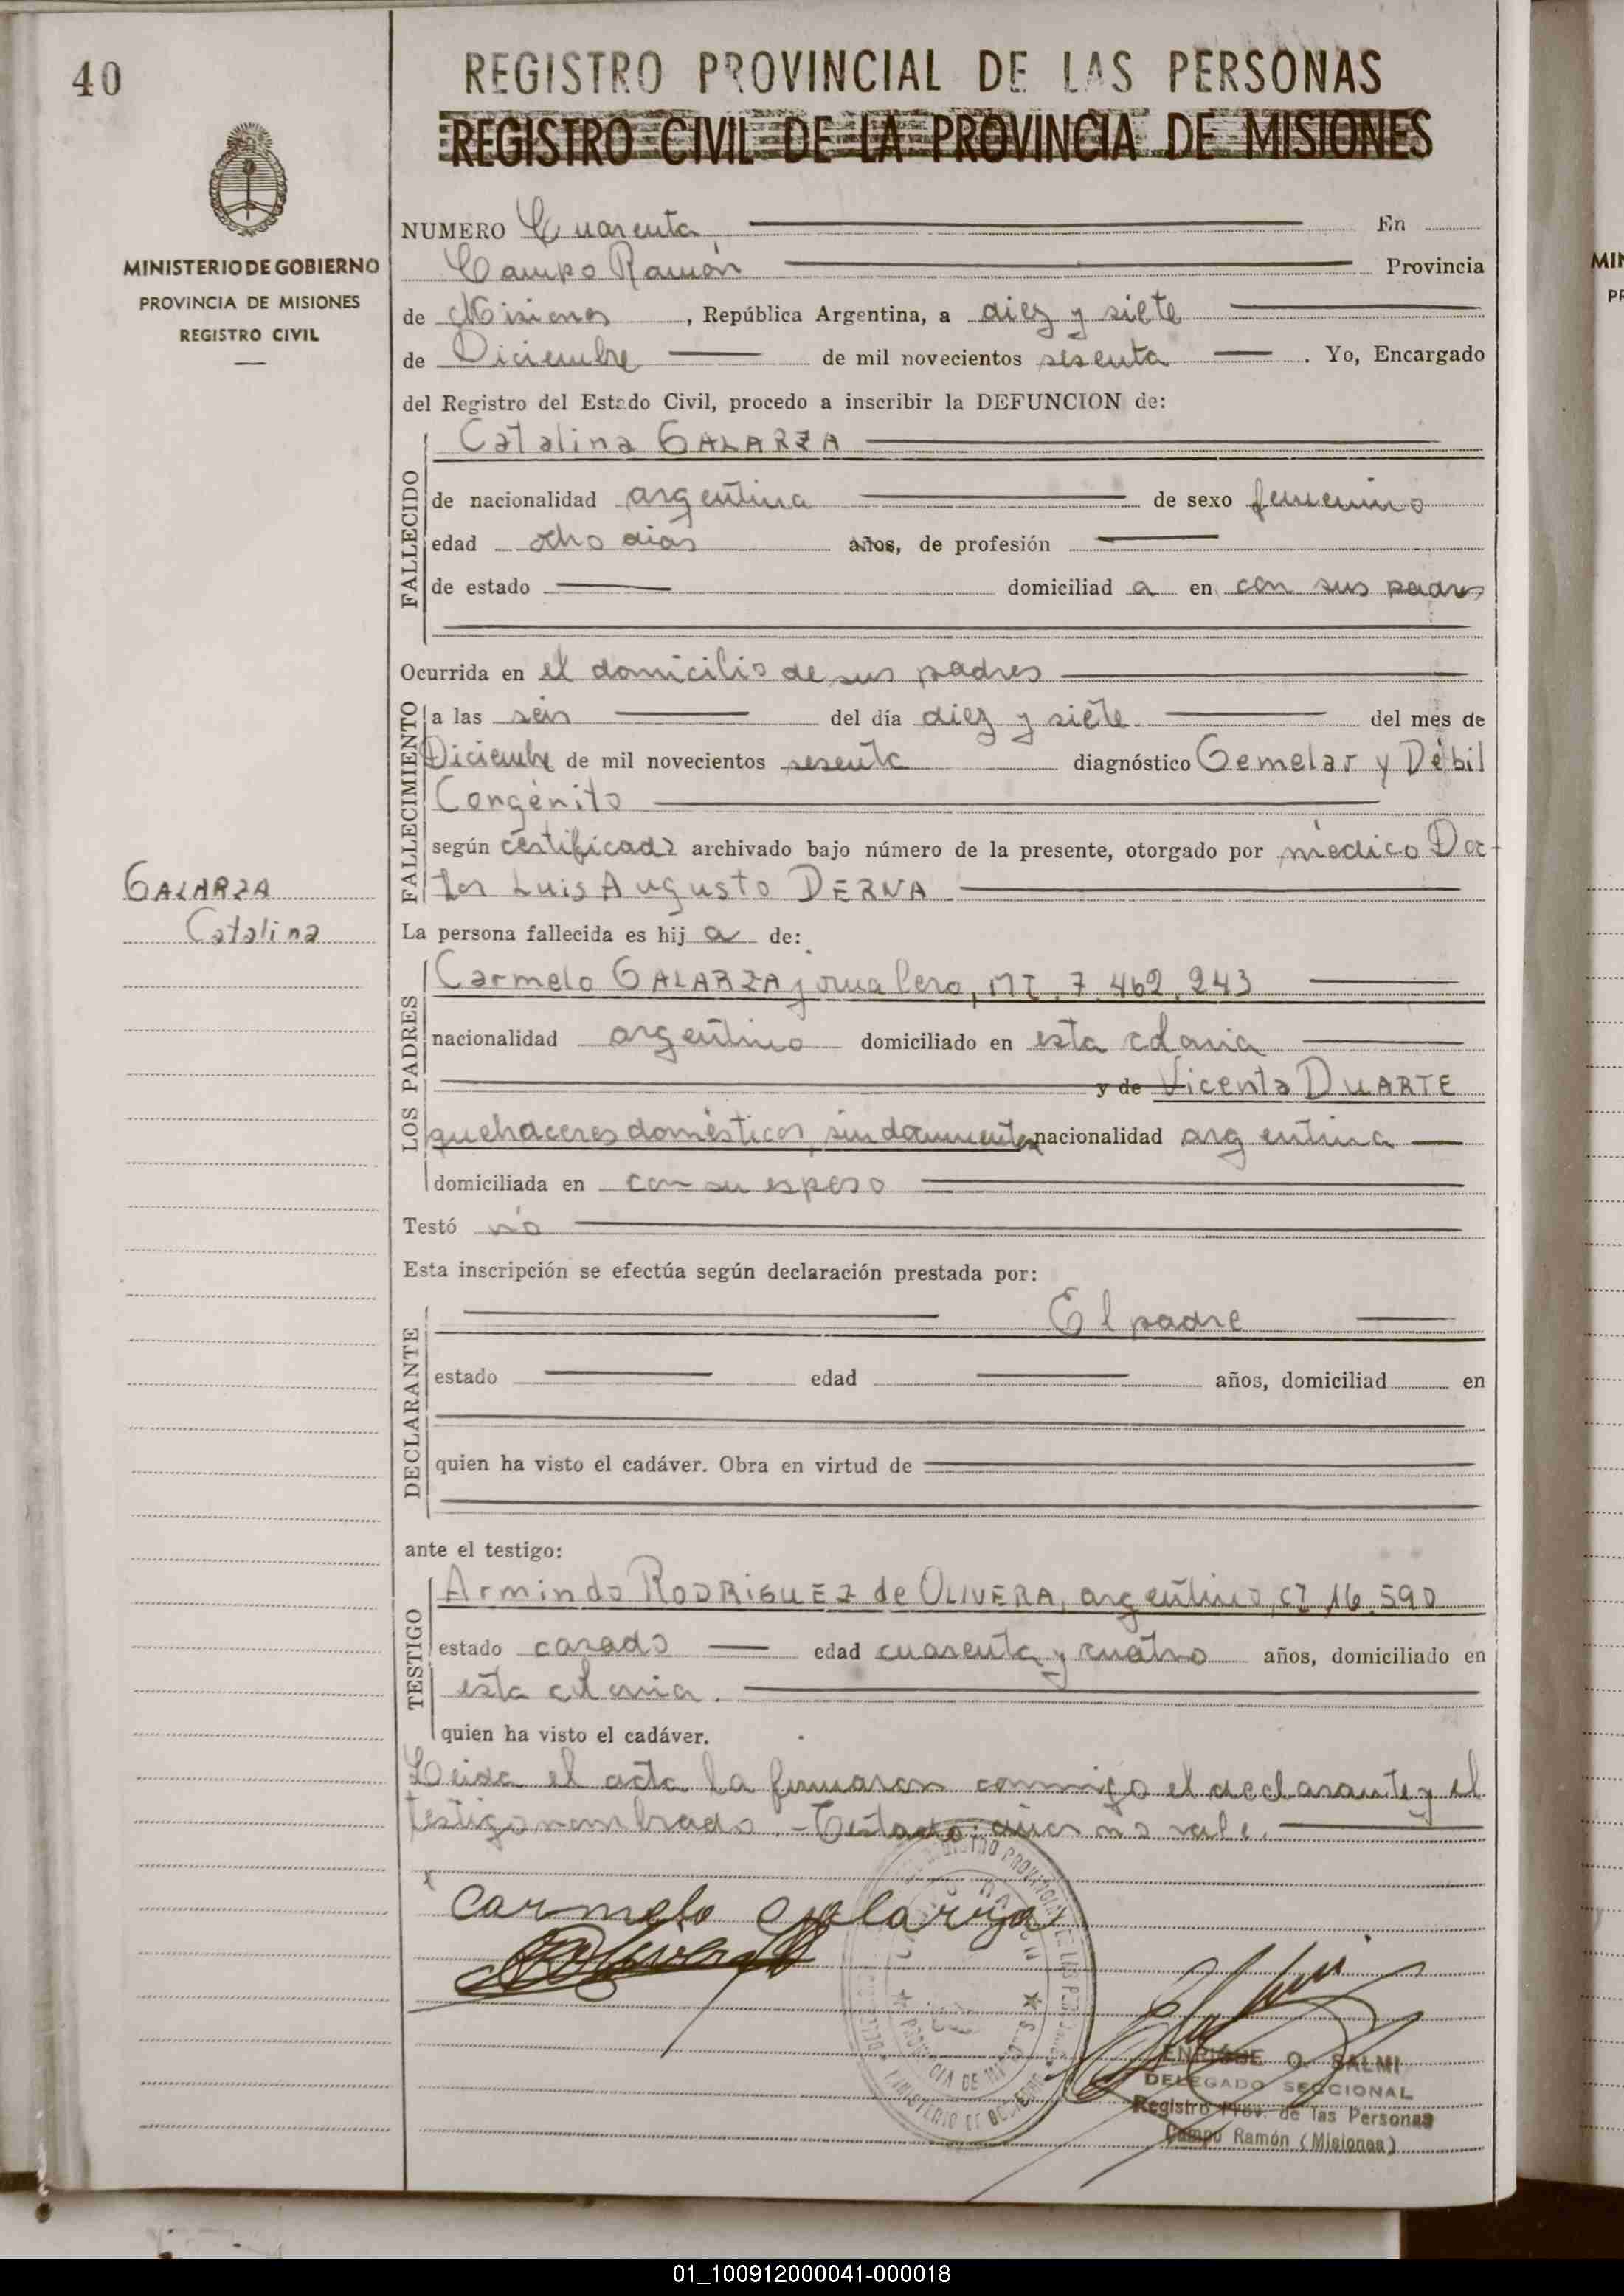 40
REGISTRO PROVINCIAL DE LAS PERSONAS
REGISTRO CIVIL DE LA PROVINCIA DE MISIONES
MINISTERIO DE GOBIERNO
PROVINCIA DE MISIONES
REGISTRO CIVIL
NUMERO Cuarenta, En
Campo Ramón Provincia
de Misiones, República Argentina, a diez y siete
de Diciembre de mil novecientos sesenta. Yo, Encargado
del Registro del Estado Civil, procedo a inscribir la DEFUNCION de:
FALLECIDO
Catalina GALARZA
de nacionalidad argentina de sexo femenino
edad ocho dias años, de profesión
de estado domiciliad a en con sus padres
Ocurrida en el domicilio de sus padres
FALLECIMIENTO
a las seis del día diez y siete del mes de
Diciembre de mil novecientos sesenta diagnóstico Gemelar y Débil
Congénito
según certificado archivado bajo número de la presente, otorgado por médico Doc-
tor Luis Augusto DERNA
GALARZA
Catalina
La persona fallecida es hij a de:
LOS PADRES
Carmelo GALARZA jornalero, MI. 7.462.243
nacionalidad argentino domiciliado en esta colonia
y de Vicenta DUARTE
quehaceres domésticos, sin documentos nacionalidad argentina
domiciliada en con su esposo
Testó no
Esta inscripción se efectúa según declaración prestada por:
DECLARANTE
El padre
estado edad años, domiciliad en
quien ha visto el cadáver. Obra en virtud de
ante el testigo:
TESTIGO
Armindo RODRIGUEZ de OLIVERA, argentino, CI 16.590
estado casado edad cuarenta y cuatro años, domiciliado en
esta colonia.
quien ha visto el cadáver.
Leida el acta la firmaron conmigo el declarante y el
testigo nombrado.- Testado: años no vale.
Carmelo Galarza
ENRIQUE O. SALMI
DELEGADO SECCIONAL
Registro Prov. de las Personas
Campo Ramón (Misiones)
01_100912000041-000018